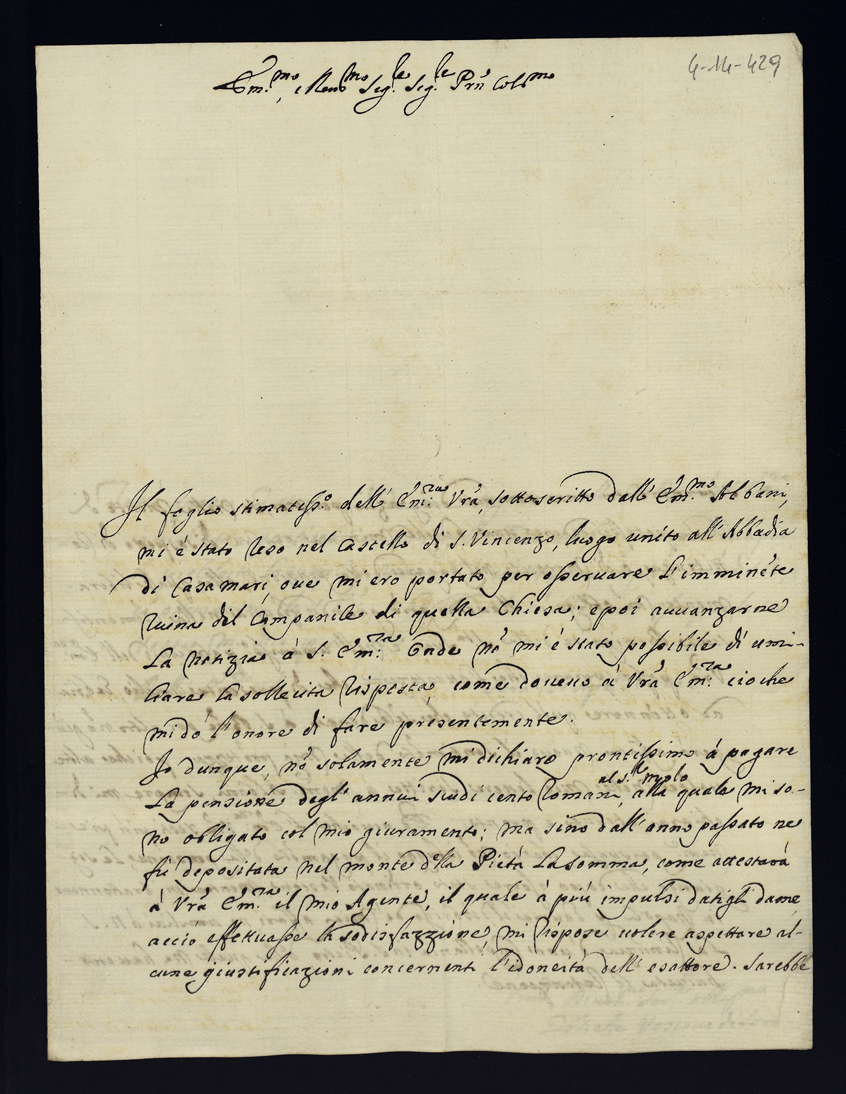 4-14-429
Em.mo, e Reud.mo Sig.le Sig.le Prñ Col.mo
Il foglio stimatiss.o dell' Em.za Vrã, sottoscritto dall' Em.mo Albani,
mi è stato reso nel Castello di S. Vincenzo, luogo unito all' Abbadia
di Casamari, oue mi ero portato per osseruare l'imminẽte
ruina del Campanile di quella Chiesa; e poi auuanzarne
la notizia à S. Em.za Onde nõ mi è stato possibile di umi-
liare la sollecita risposta, come doueuo à Vrã Em.za cioche
mi dò l'onore di fare presentemente.
Io dunque, nõ solamente mi dichiaro prontissimo à pagare
la pensione degl' annui scudi cento romani, alla quale mi so-
no obligato col mio giuramento; ma sino dall' anno passato ne
fù depositata nel monte dlla Pietà la somma, come attestarà
à Vrã Em.za il mio Agente, il quale à più impulsi datigli da me,
acciò effettuasse la sodisfazzione, mi rispose uolere aspettare al-
cune giustificazioni concernenti l'idoneità dell' esattore. Sarebbe